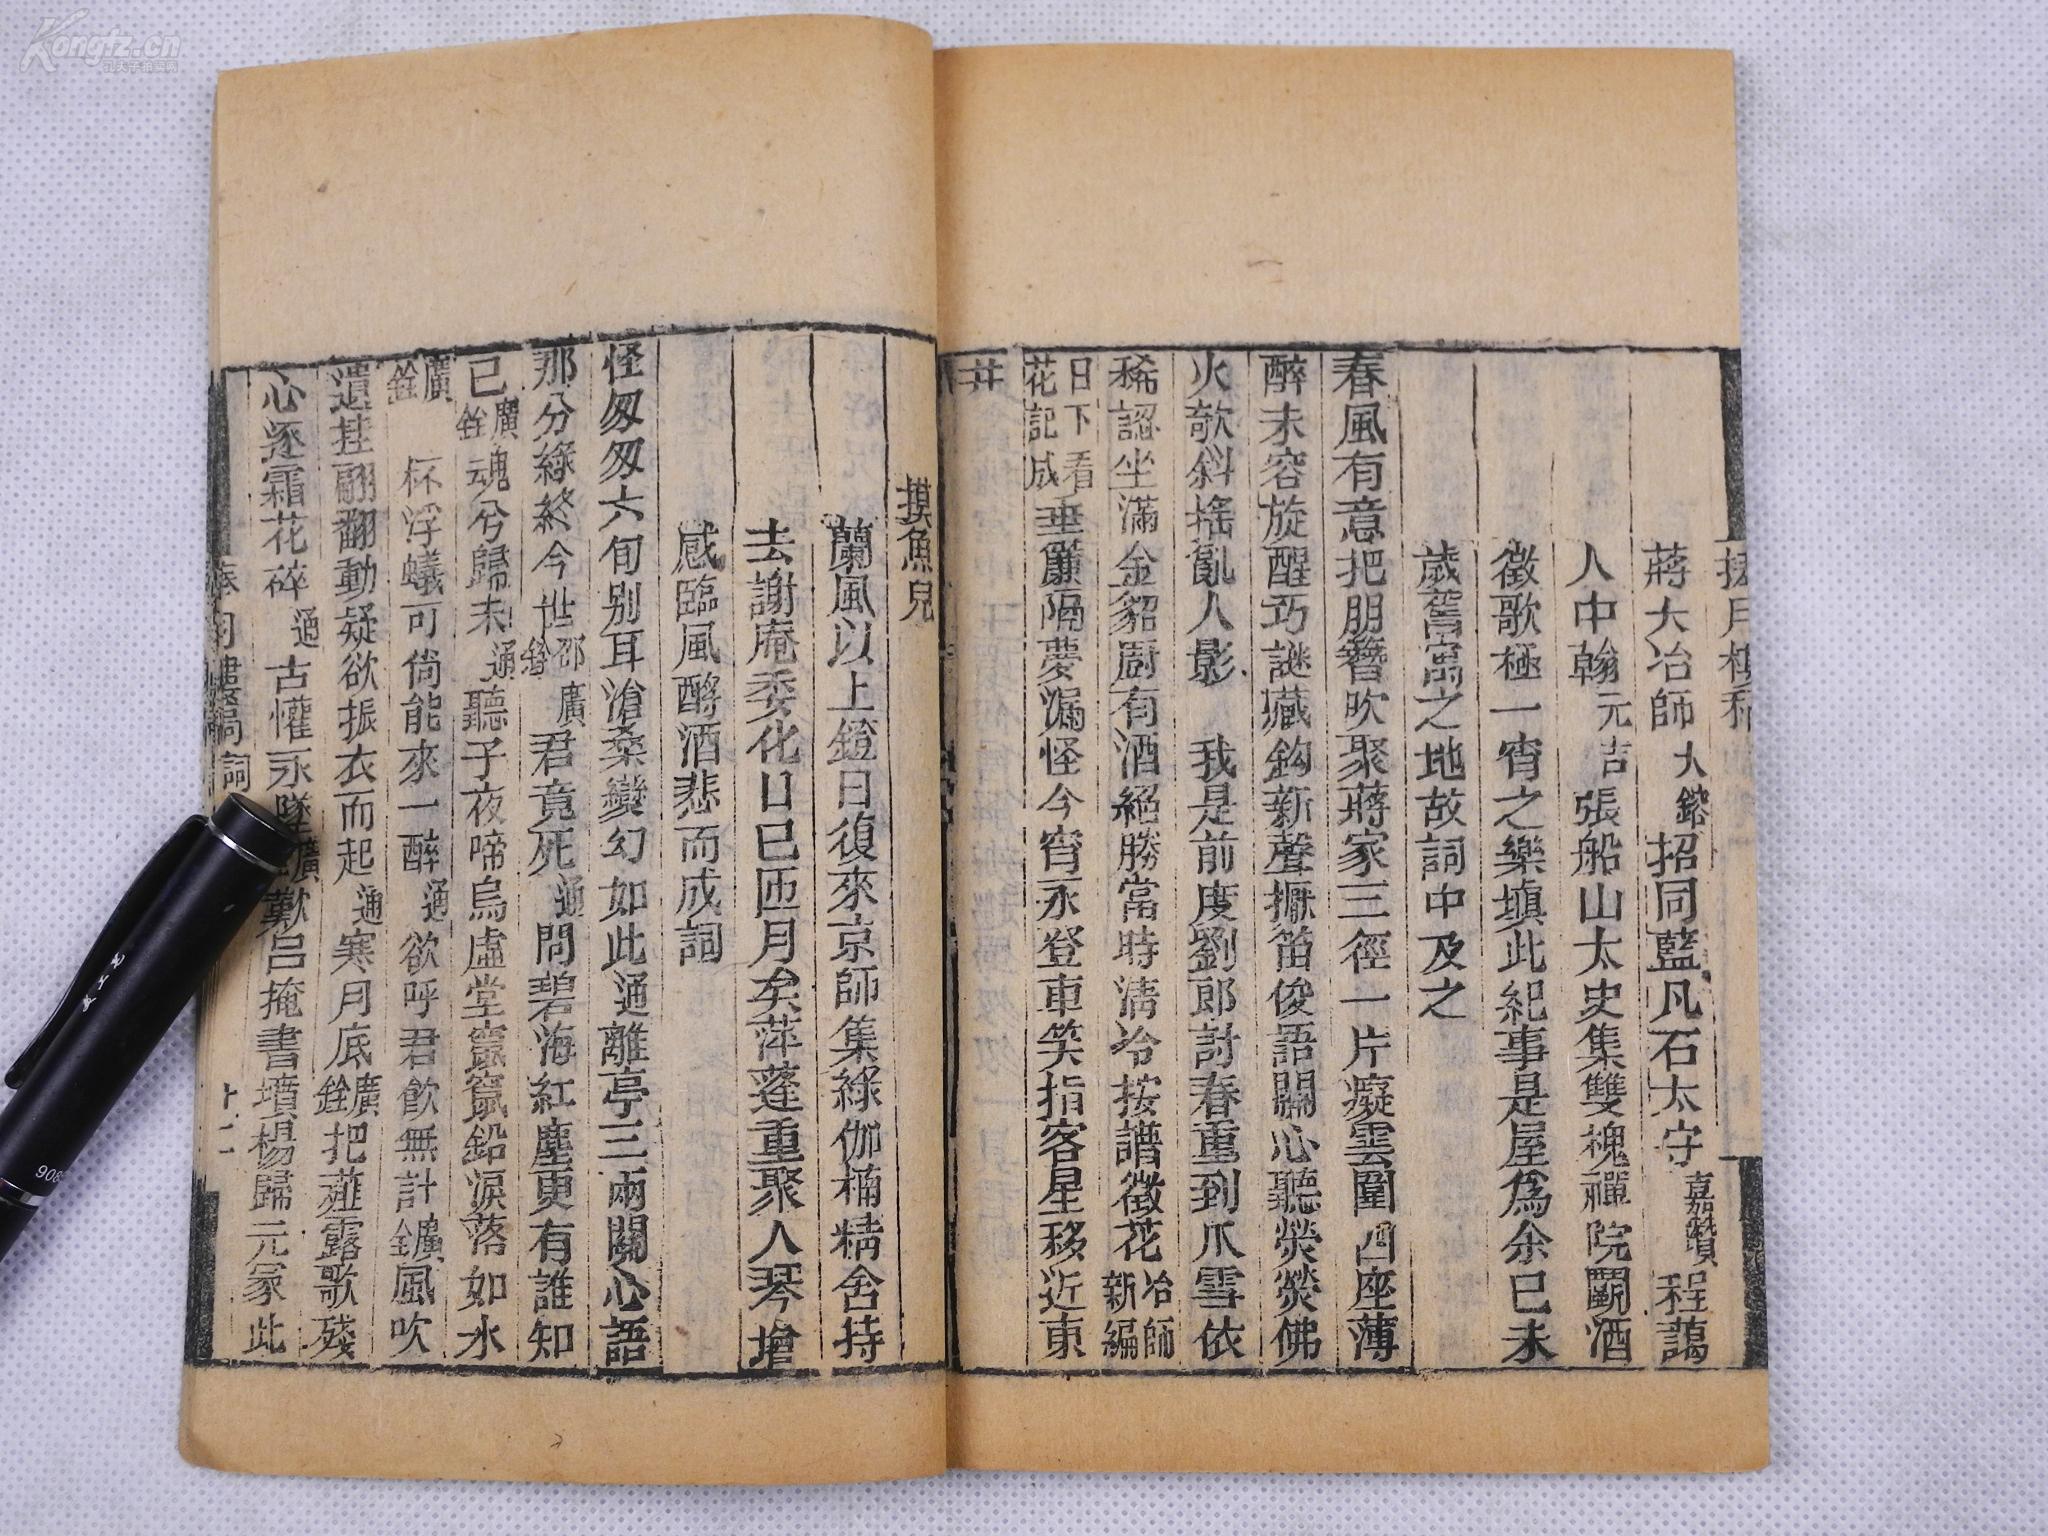 蔣大冶師大鎔招同藍凡石太守嘉瓚程藹
人中翰元吉張船山太史集雙槐禪院鬭酒
徵歌極一宵之樂塡此紀事是屋爲余己未
歲舊寓之地故詞中及之
春風有意把朋簪吹聚蔣家三徑一片癡雲圍四座薄
醉未容旋醒巧謎藏鈎新聲擫笛俊語關心聽熒熒佛
火欹斜搖亂人影 我是前度劉郎討春重到爪雪依
稀認坐滿金貂廚有酒絕勝當時淸冷按譜徵花冶師新編
日下看花記成垂簾隔夢漏怪今宵永登車笑指客星移近東
井
摸魚兒
蘭風以上鐙日復來京師集綠伽楠精舍持
去謝庵委化日已匝月矣萍蓬重聚人琴增
感臨風酹酒悲而成詞
怪匆匆六旬別耳滄桑變幻如此通離亭三兩關心語
那分緣終今世邵廣銓君竟死通問碧海紅塵更有誰知
已廣銓魂兮歸未通聽子夜啼烏虛堂竄鼠鉛淚落如水
廣銓 杯浮蟻可倘能來一醉通欲呼君飮無計廣銓風吹
遺挂翩翻動疑欲振衣而起通寒月底廣銓把薤露歌殘
心逐霜花碎通古懽永墜廣銓歎呂掩書墳楊歸元冢此
十二
Kongfz.cn
孔夫子拍卖网
908